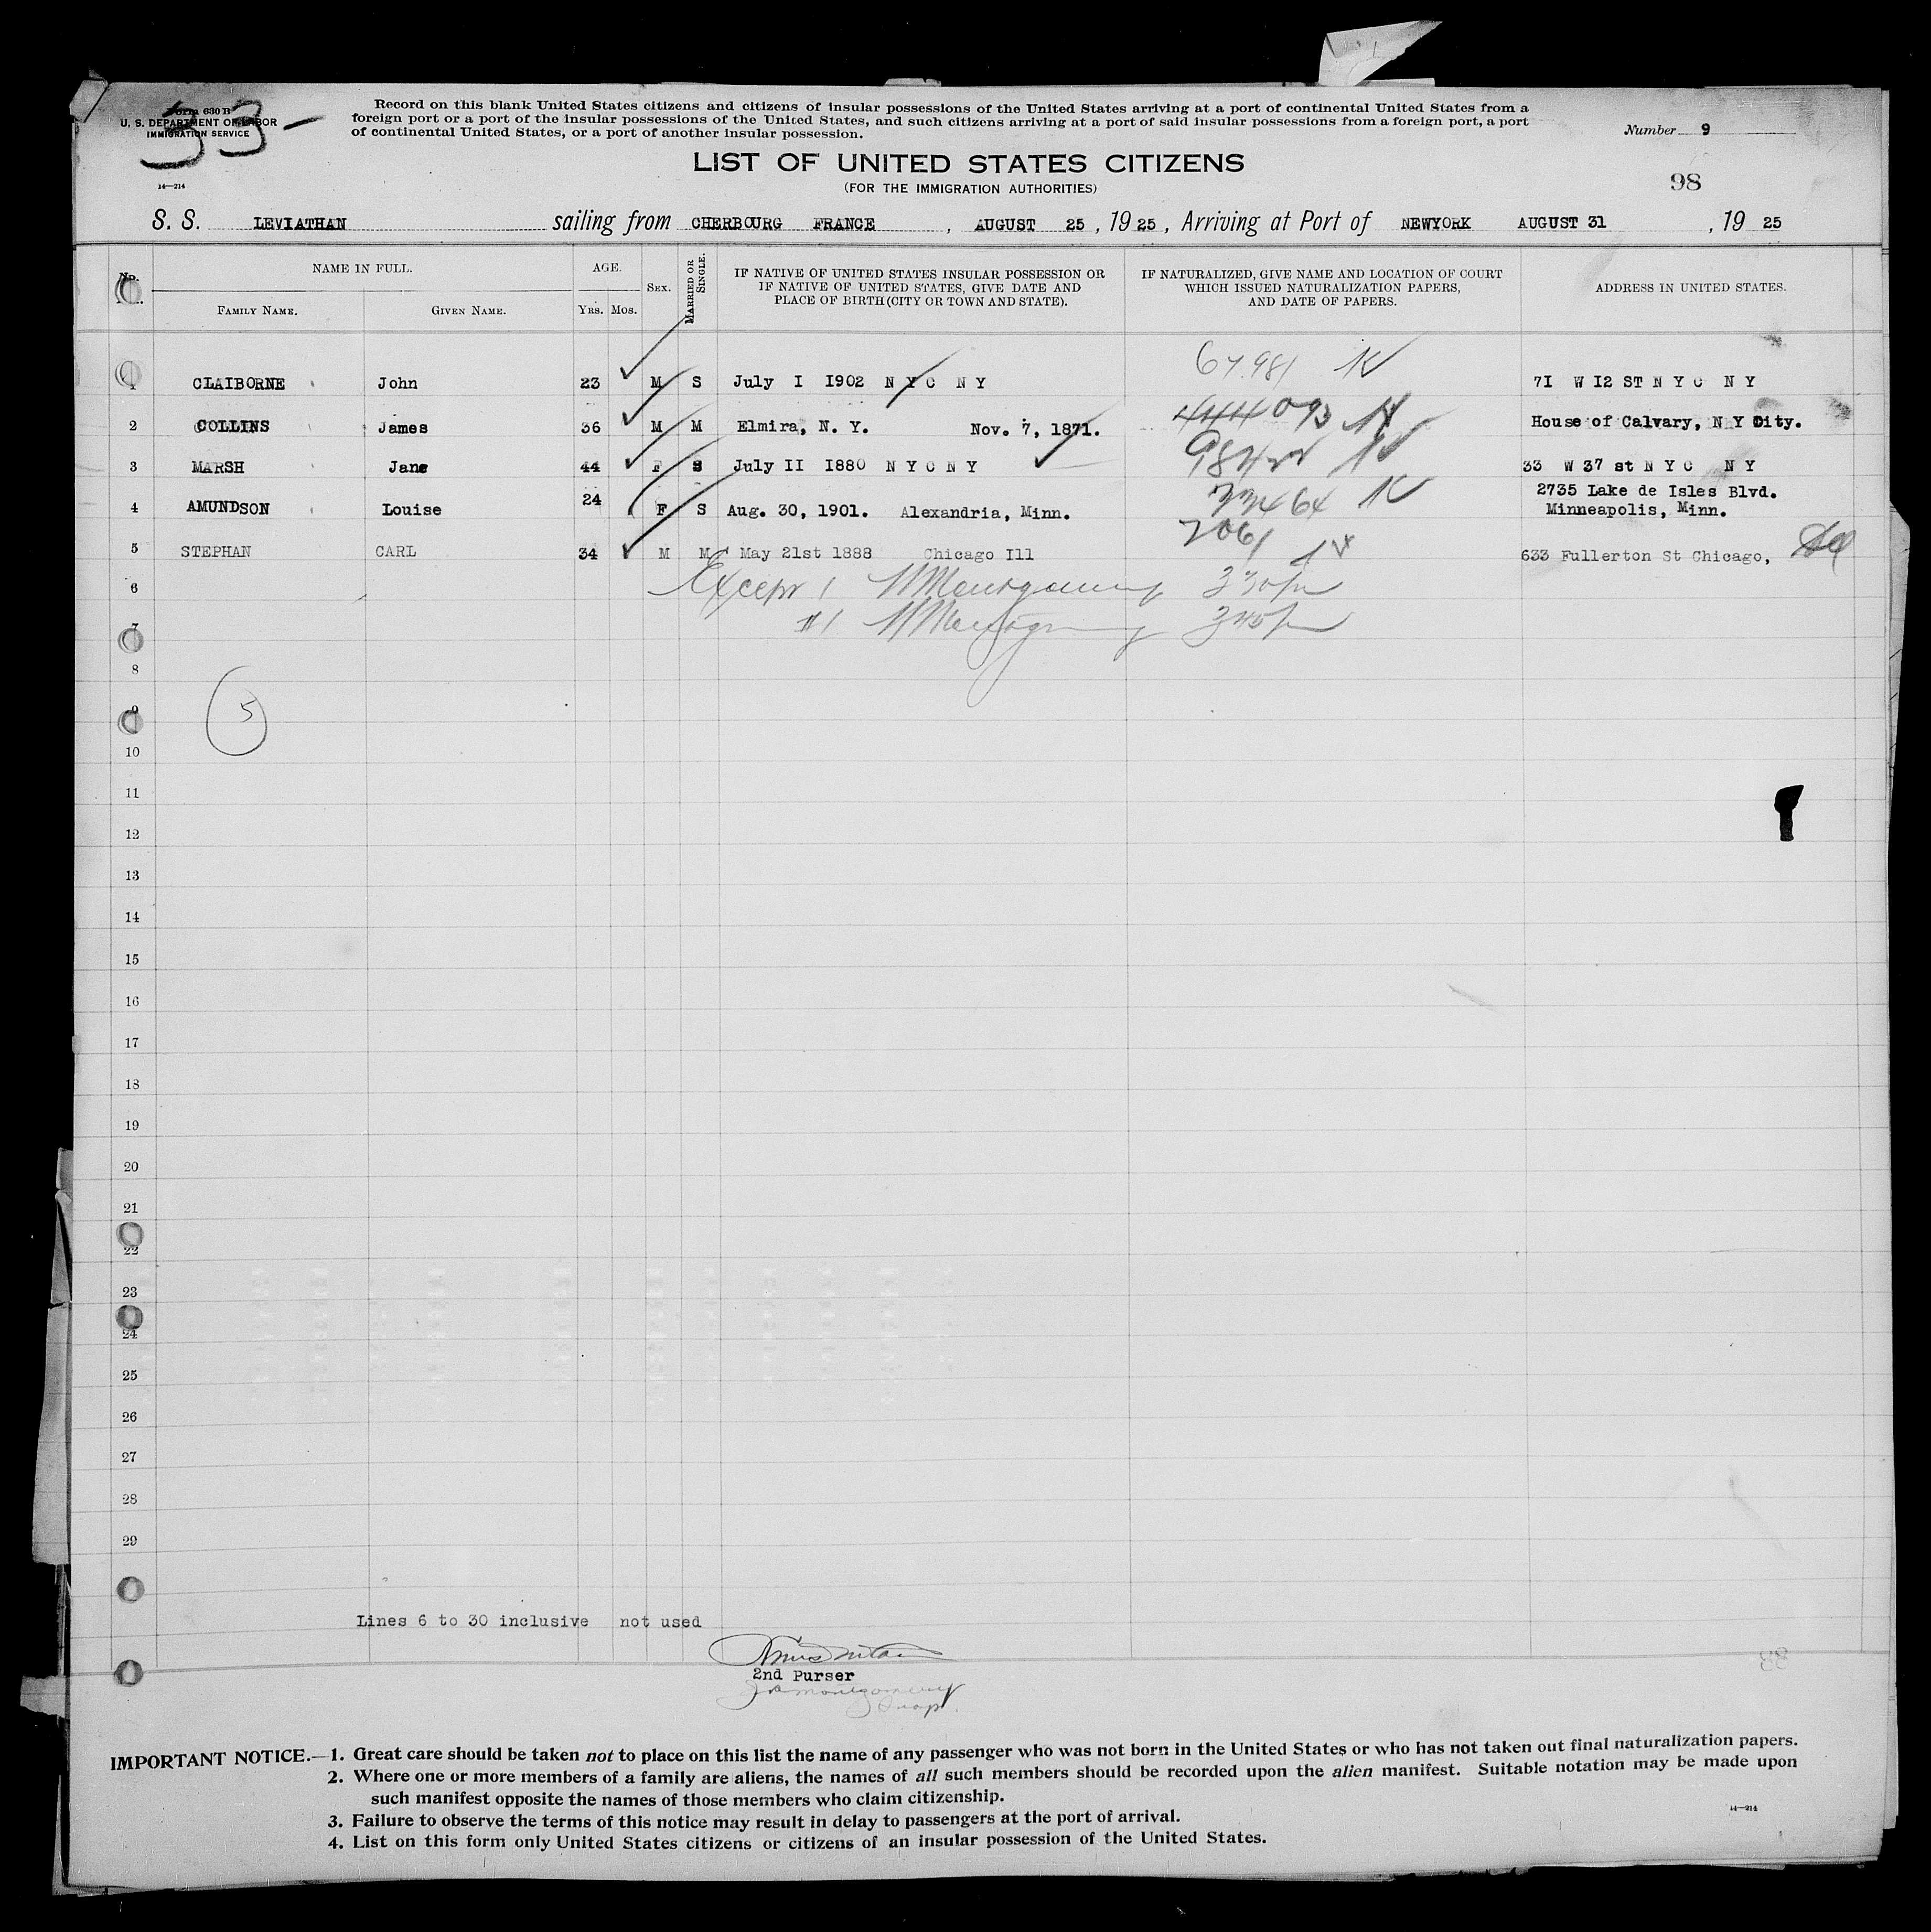 53-
Form 630 B
U. S. DEPARTMENT OF LABOR
IMMIGRATION SERVICE
14—214
Record on this blank United States citizens and citizens of insular possessions of the United States arriving at a port of continental United States from a
foreign port or a port of the insular possessions of the United States, and such citizens arriving at a port of said insular possessions from a foreign port, a port
of continental United States, or a port of another insular possession.
Number 9
LIST OF UNITED STATES CITIZENS
(FOR THE IMMIGRATION AUTHORITIES)
98
S. S. LEVIATHAN sailing from CHERBOURG FRANCE, AUGUST 25, 1925, Arriving at Port of NEWYORK AUGUST 31, 19 25
No. NAME IN FULL. AGE. SEX. MARRIED OR SINGLE. IF NATIVE OF UNITED STATES INSULAR POSSESSION OR IF NATIVE OF UNITED STATES, GIVE DATE AND PLACE OF BIRTH (CITY OR TOWN AND STATE). IF NATURALIZED, GIVE NAME AND LOCATION OF COURT WHICH ISSUED NATURALIZATION PAPERS, AND DATE OF PAPERS. ADDRESS IN UNITED STATES.
FAMILY NAME. GIVEN NAME. YRS. MOS.
67981
1 CLAIBORNE John 23 M S July I I902 N Y C N Y 7I W I2 ST N Y C N Y
2 COLLINS James 36 M M Elmira, N. Y. Nov. 7, 1871. House of Calvary, N Y City.
3 MARSH Jane 44 F S July II I880 N Y C N Y 33 W 37 st N Y C N Y
4 AMUNDSON Louise 24 F S Aug. 30, 1901. Alexandria, Minn. 2735 Lake de Isles Blvd.
Minneapolis, Minn.
7061
5 STEPHAN CARL 34 M M May 21st 1888 Chicago Ill 633 Fullerton St Chicago,
6 Except 1 Montgomery 330 pm
7 #1 Montgomery 345 pm
8
5
9
10
11
12
13
14
15
16
17
18
19
20
21
22
23
24
25
26
27
28
29
Lines 6 to 30 inclusive not used
2nd Purser
Montgomery
Insp.
IMPORTANT NOTICE.—1. Great care should be taken not to place on this list the name of any passenger who was not born in the United States or who has not taken out final naturalization papers.
2. Where one or more members of a family are aliens, the names of all such members should be recorded upon the alien manifest. Suitable notation may be made upon
such manifest opposite the names of those members who claim citizenship.
3. Failure to observe the terms of this notice may result in delay to passengers at the port of arrival.
4. List on this form only United States citizens or citizens of an insular possession of the United States.
14—214